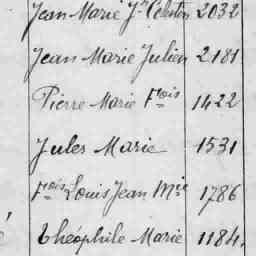 Jean Marie Jn Célestin 2032
Jean Marie Julien 2181
Pierre Marie Fçois 1422
Jules Marie 1531
Fçois Louis Jean Mie 1786
Théophile Marie 1184.
é